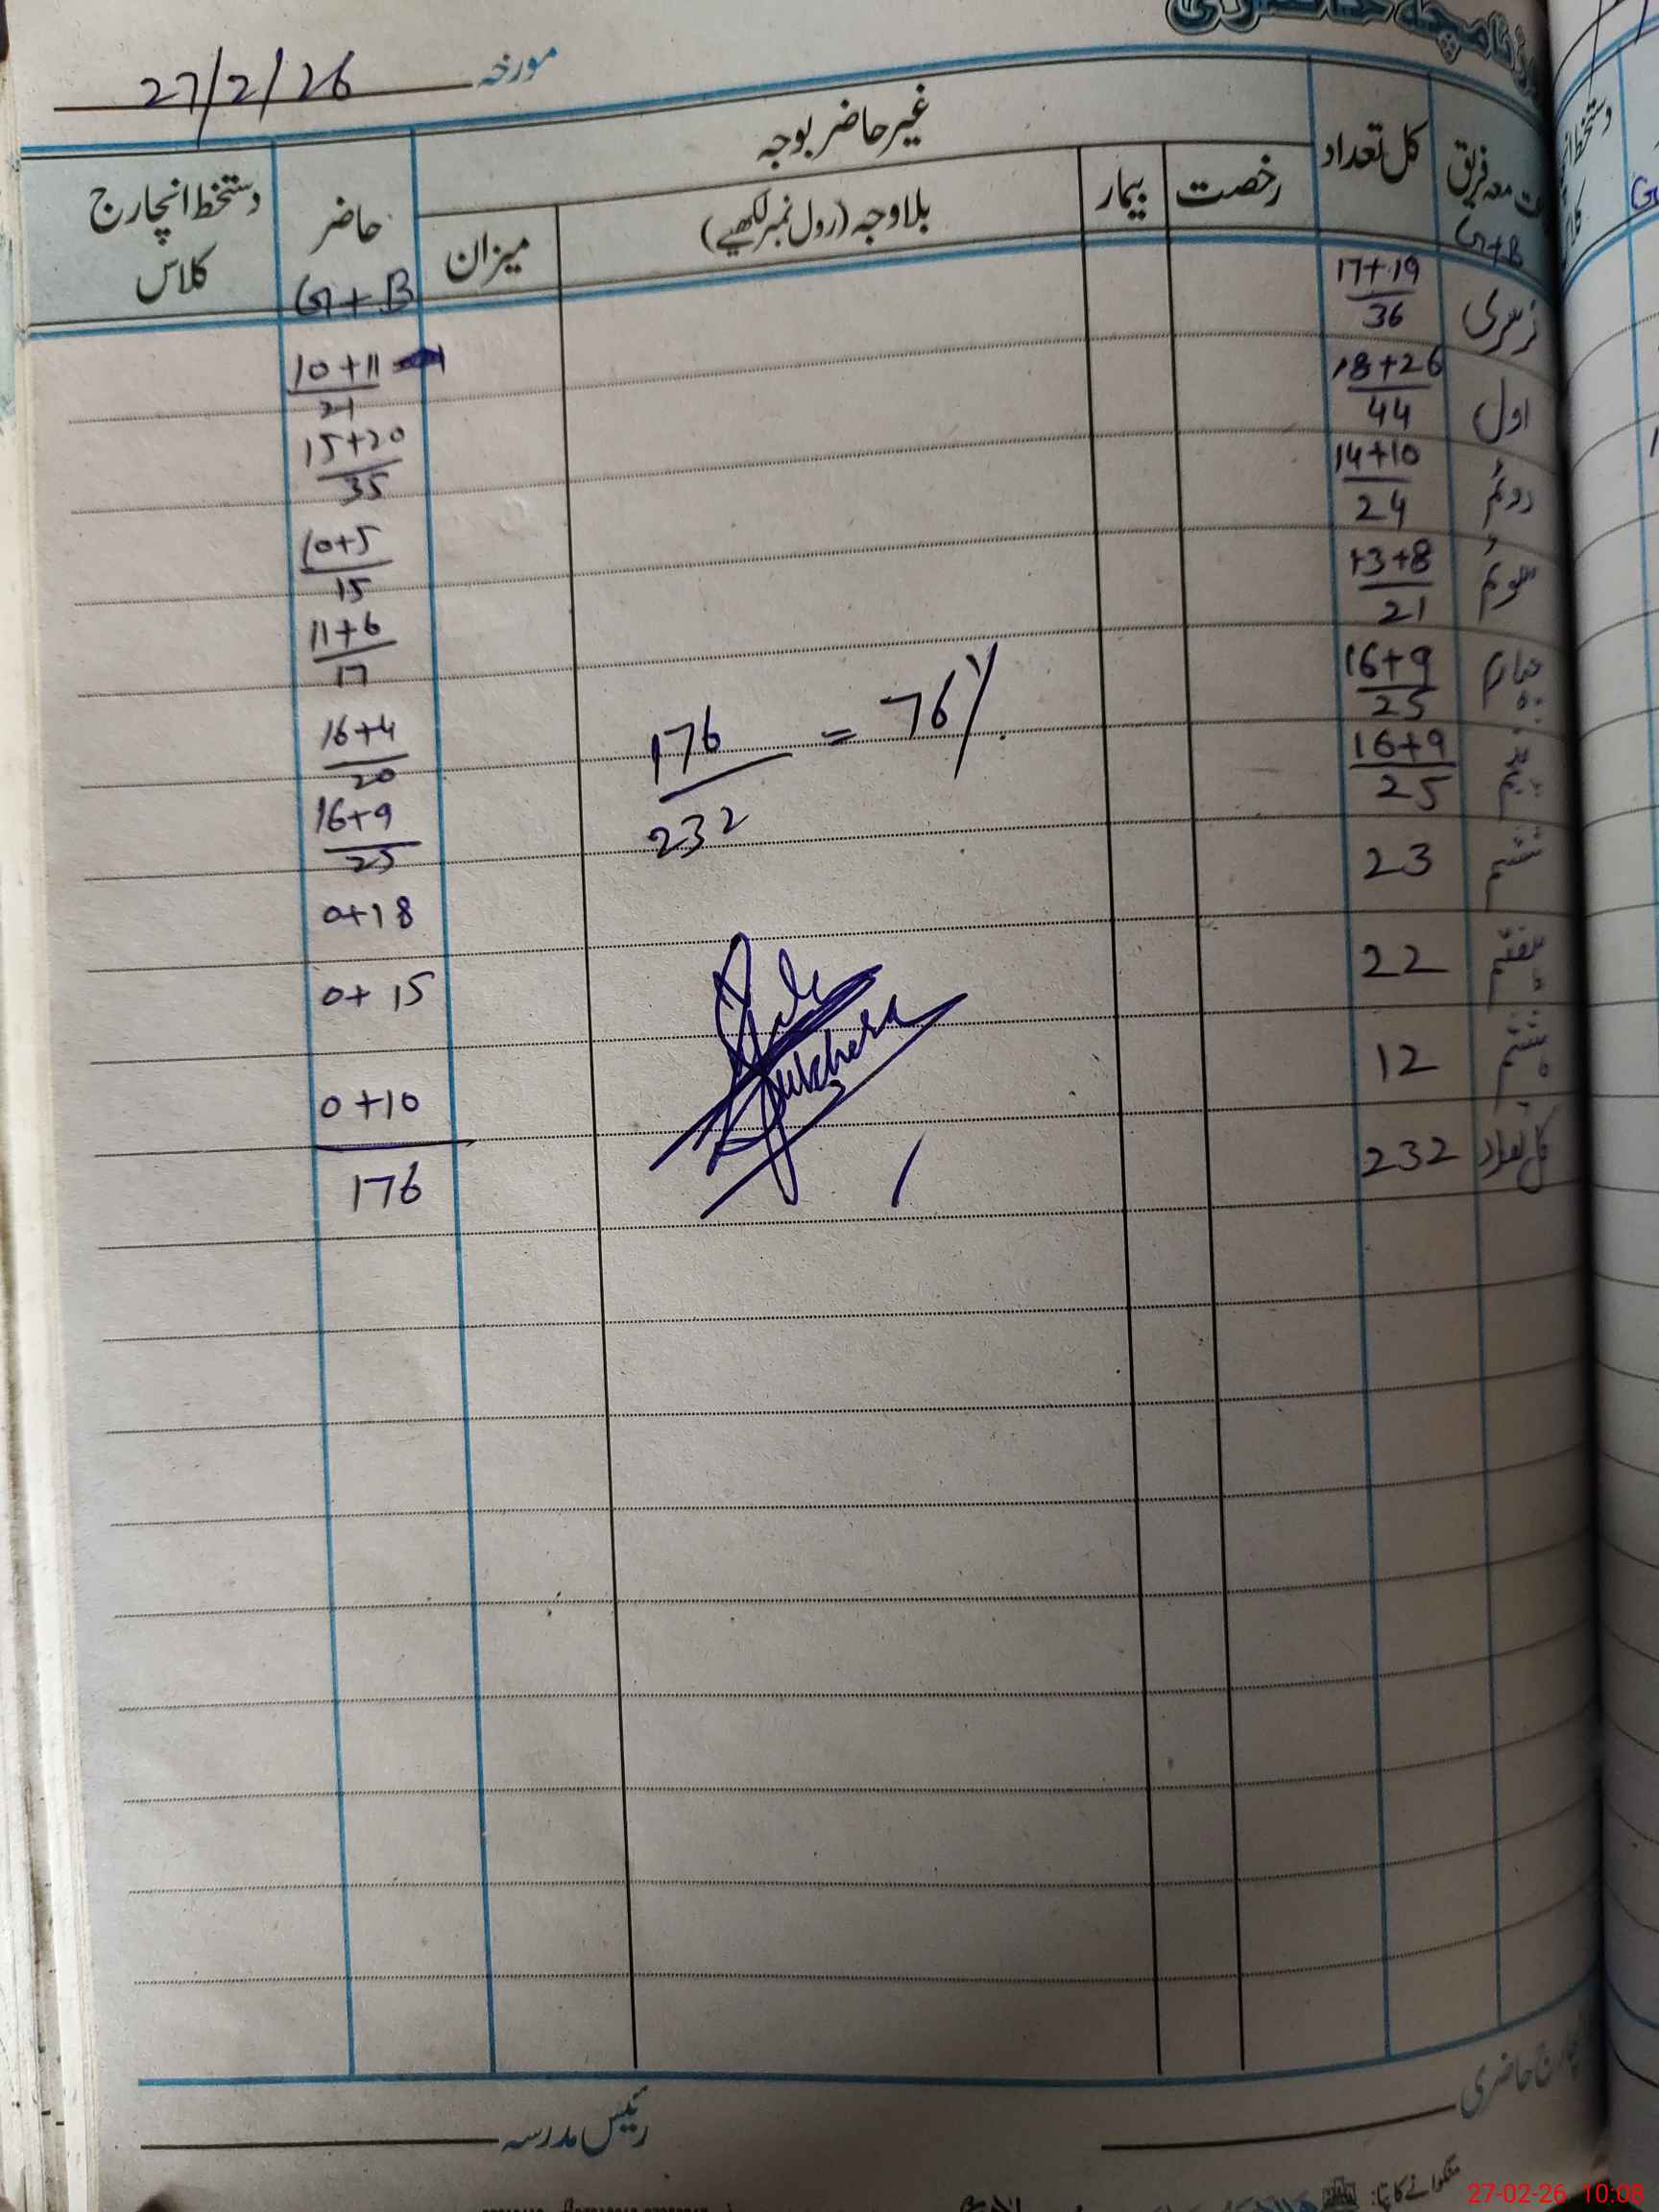 مورخہ 27/2/26
کل تعداد
غیر حاضر بوجہ
رخصت
بیمار
بلاوجہ (رول نمبر لکھیے)
میزان
حاضر
G+B
دستخط انچارج
کلاس
معہ فریق
G+B
نرسری 17+19 10+11
36 21
اول 18+26 15+20
44 35
دوئم 14+10 10+5
24 15
سوئم 13+8 11+6
21 17
چہارم 16+9 16+4
25 20
پنجم 16+9 16+9
25 25
176 = 76%
232
ششم 23 0+18
ہفتم 22 0+15
ہشتم 12 0+10
کل تعداد 232 176
انچارج حاضری
رئیس مدرسہ
منگوانے کا پتا:
27-02-26 10:08